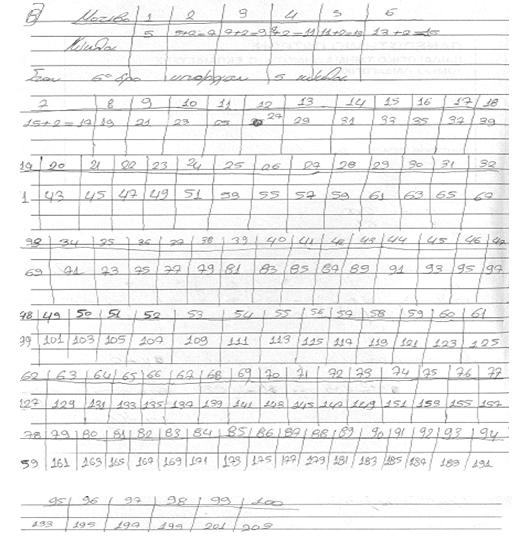 1 2 3 4 5 6
5 5+2=7 7+2=9 9+2=11 11+2=13 13+2=15
5
7 8 9 10 11 12 13 14 15 16 17 18
15+2=17 19 21 23 25 27 29 31 33 35 37 39
19 20 21 22 23 24 25 26 27 28 29 30 31 32
1 43 45 47 49 51 53 55 57 59 61 63 65 67
33 34 35 36 37 38 39 40 41 42 43 44 45 46 47
69 71 73 75 77 79 81 83 85 87 89 91 93 95 97
48 49 50 51 52 53 54 55 56 57 58 59 60 61
99 101 103 105 107 109 111 113 115 117 119 121 123 125
62 63 64 65 66 67 68 69 70 71 72 73 74 75 76 77
127 129 131 133 135 137 139 141 143 145 147 149 151 153 155 157
78 79 80 81 82 83 84 85 86 87 88 89 90 91 92 93 94
59 161 163 165 167 169 171 173 175 177 179 181 183 185 187 189 191
95 96 97 98 99 100
193 195 197 199 201 203